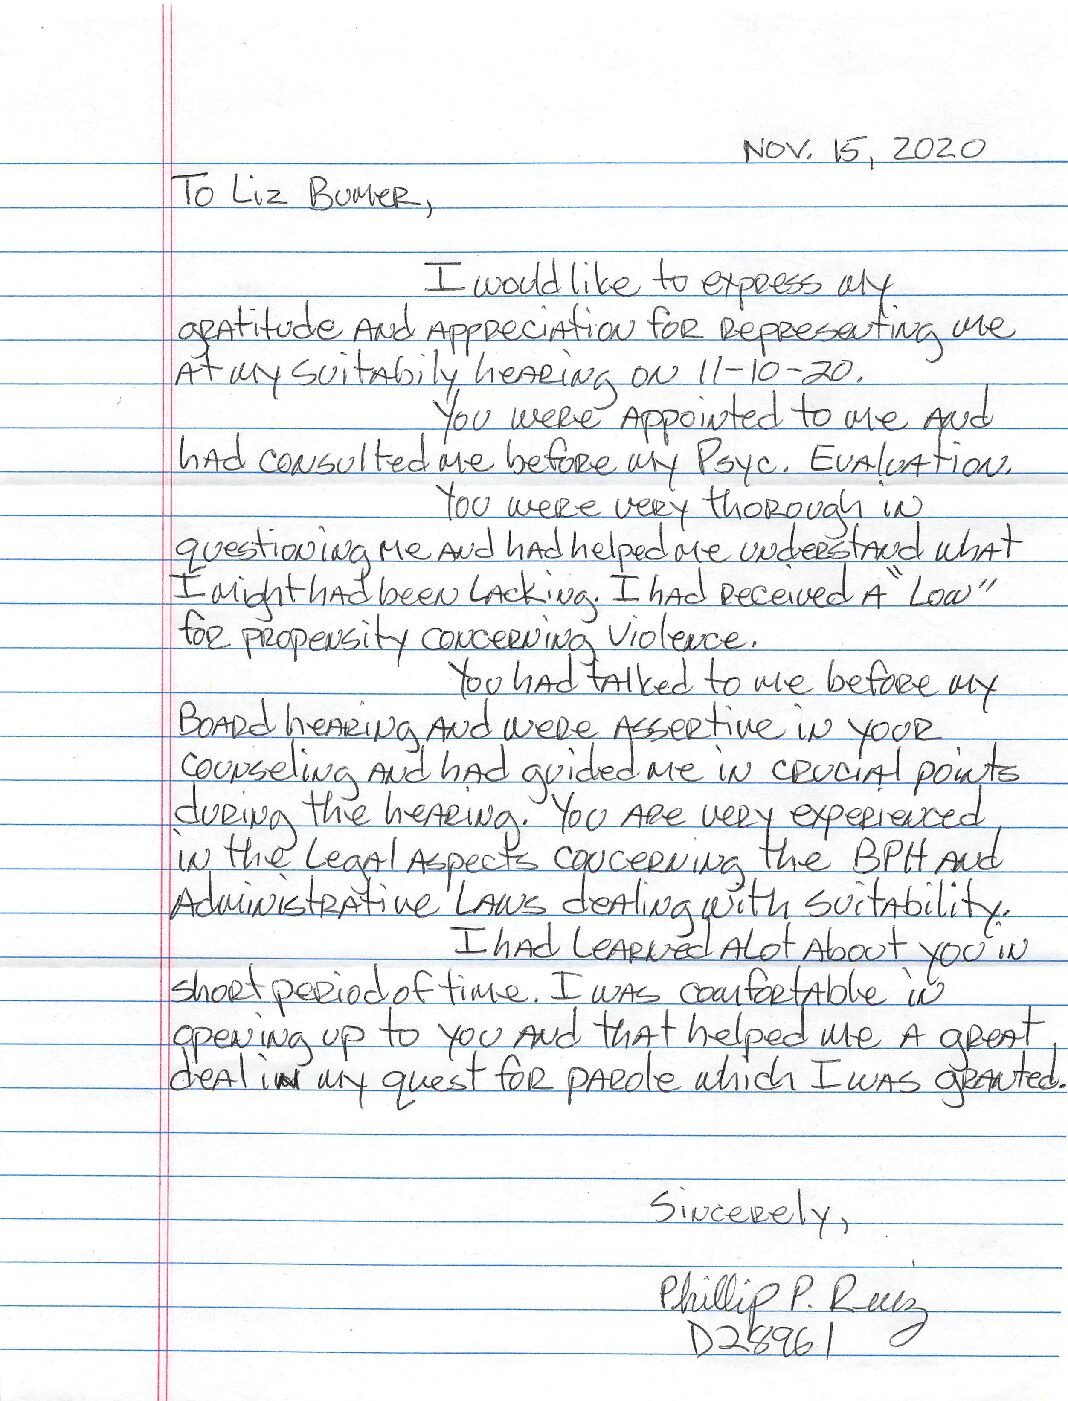 Nov. 15, 2020
To Liz Bumer,
I would like to express my
gratitude and appreciation for representing me
at my suitabily hearing on 11-10-20.
You were appointed to me and
had consulted me before my Psyc. Evaluation.
You were very thorough in
questioning me and had helped me understand what
I might had been lacking. I had received a "Low"
for propensity concerning violence.
You had talked to me before my
Board hearing and were assertive in your
counseling and had guided me in crucial points
during the hearing. You are very experienced
in the Legal Aspects concerning the BPH and
Administrative Laws dealing with suitability.
I had learned alot about you in
short period of time. I was comfortable in
opening up to you and that helped me a great
deal in my quest for parole which I was granted.
Sincerely,
Phillip P. Ruiz
D28961